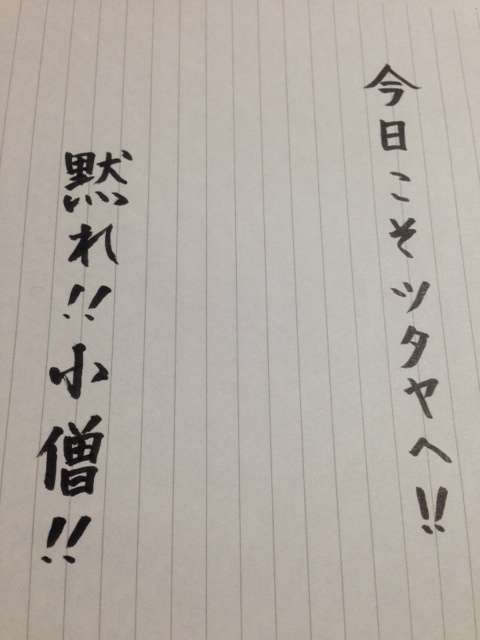 今日こそツタヤへ!!
黙れ!!小僧!!